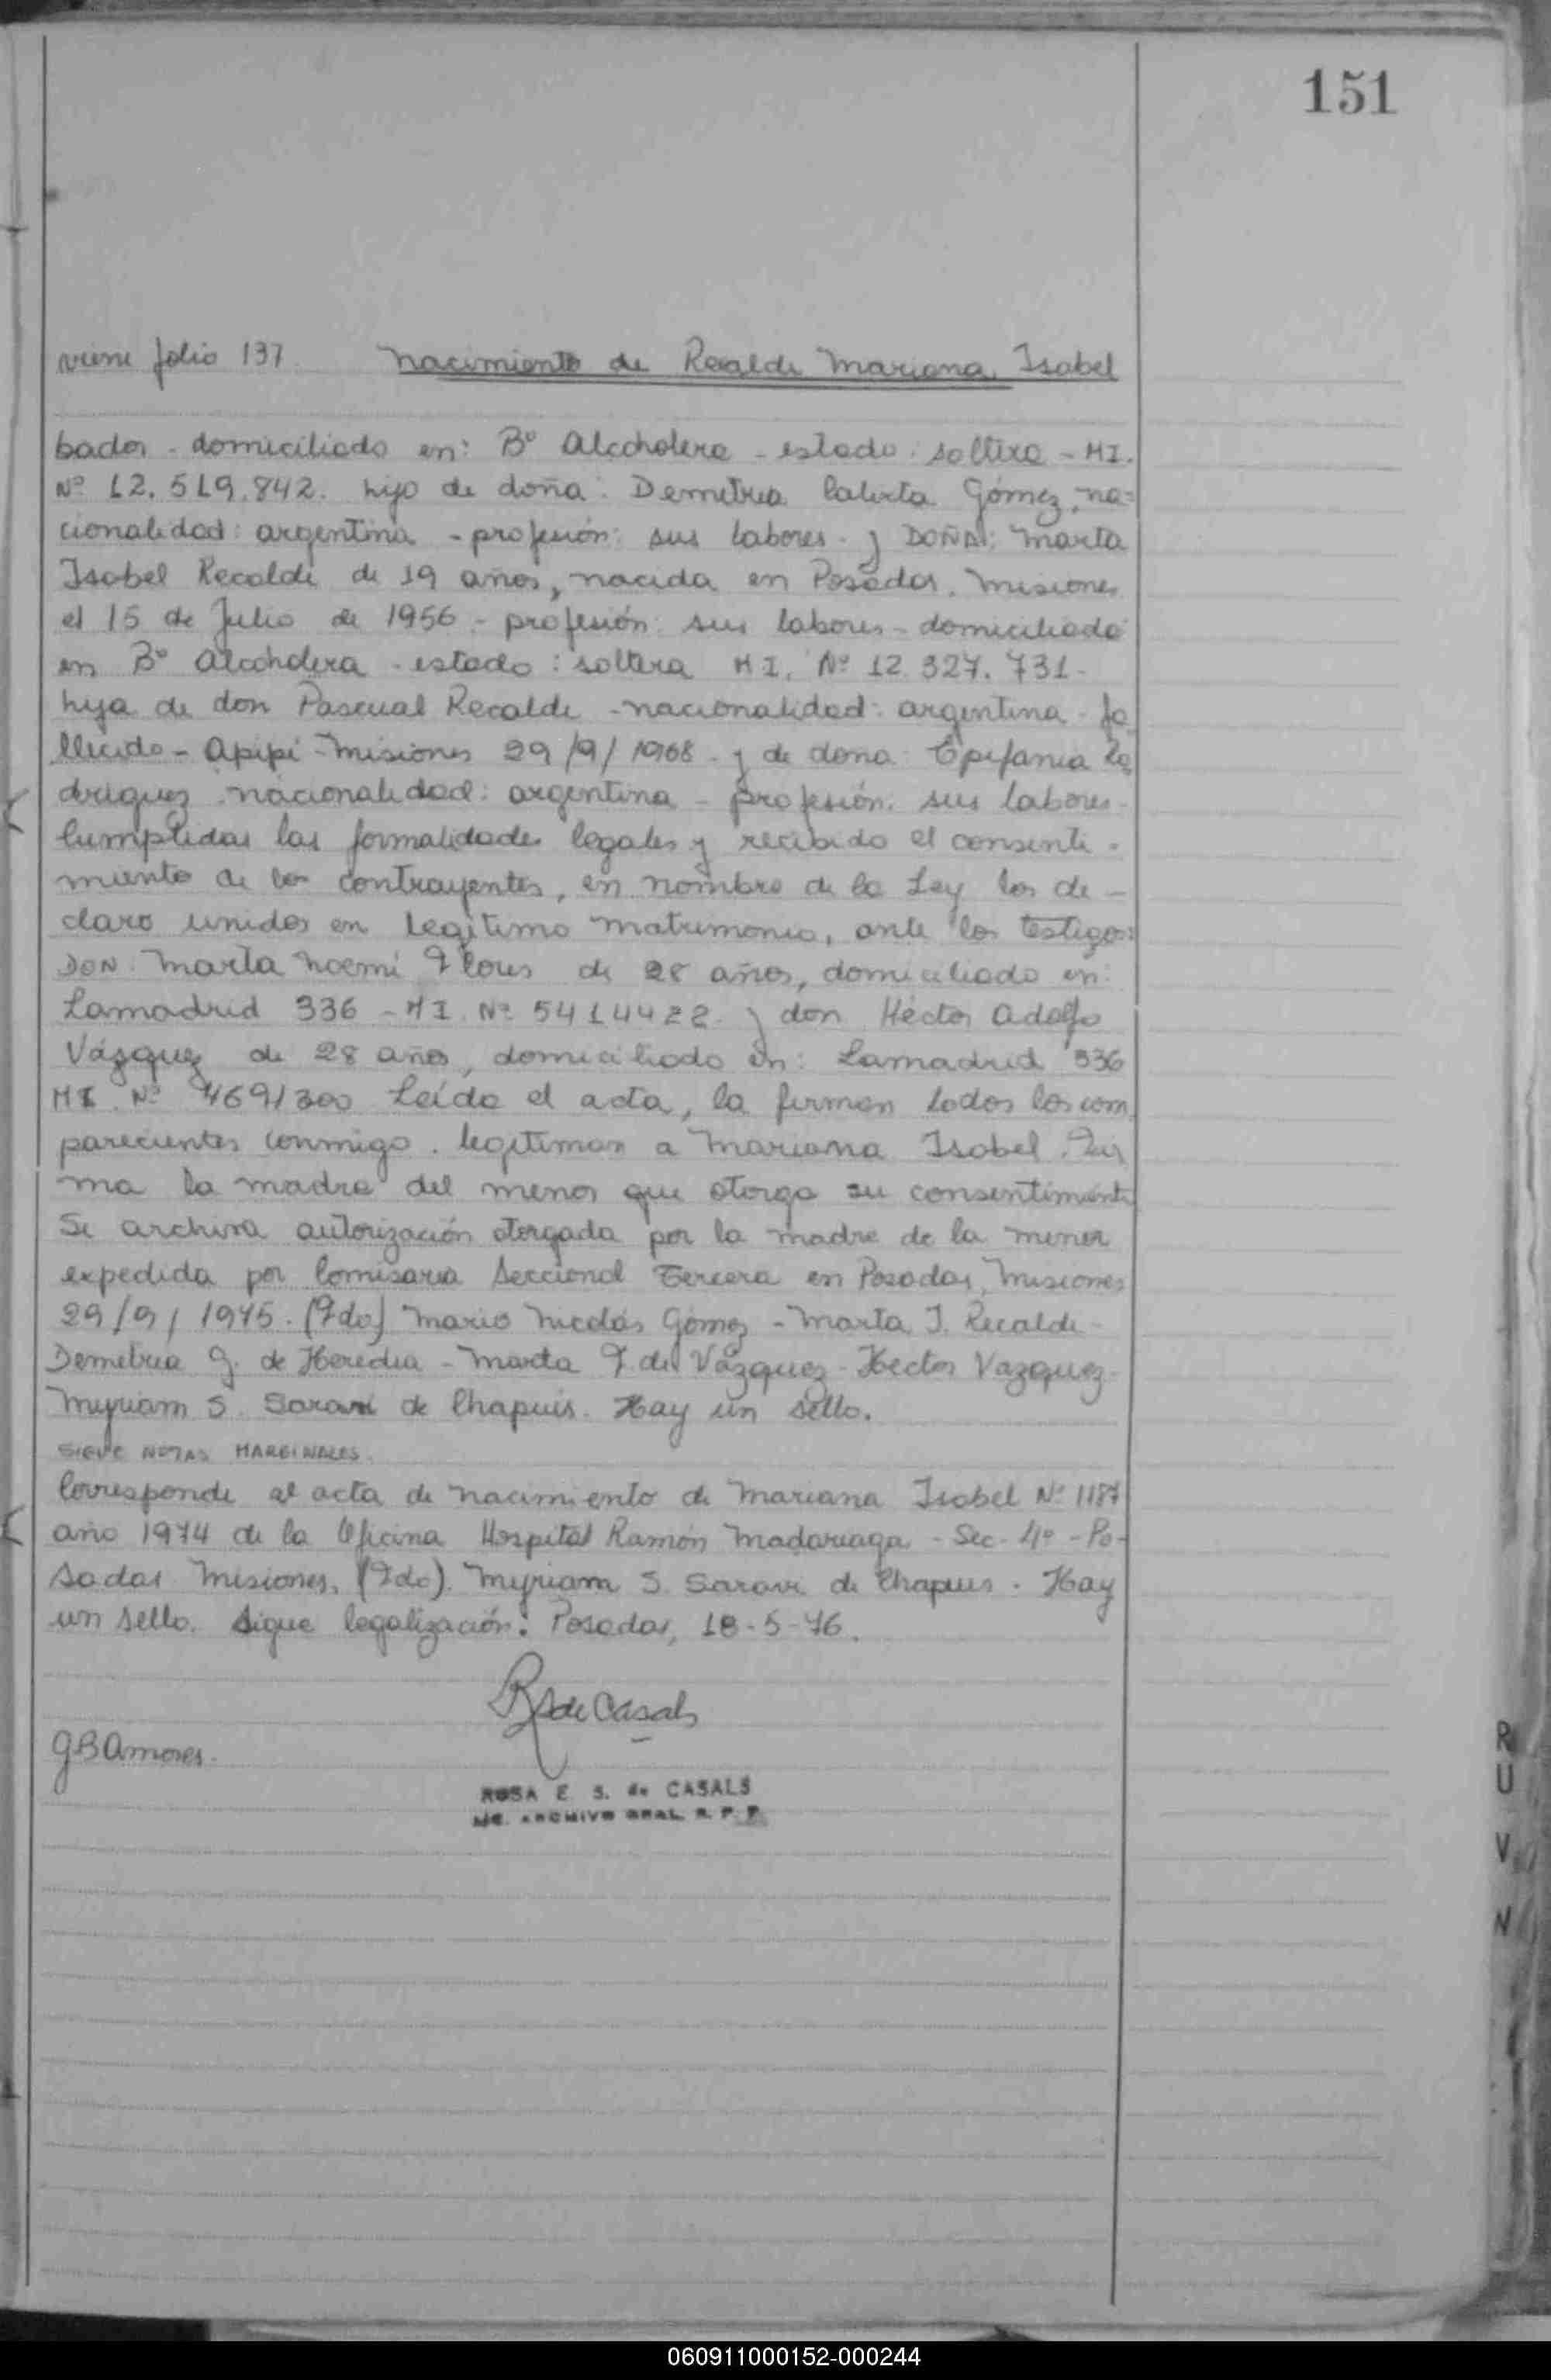 151
viene folio 137. Nacimiento de Recalde Mariana Isabel
bador - domiciliado en: Bº Alcoholera - estado: soltero - MI.
Nº 12.519.842. hijo de doña: Demetria Gómez, na=
cionalidad: argentina - profesión: sus labores - y DOÑA: Marta
Isabel Recalde de 19 años, nacida en Posadas, Misiones
el 15 de Julio de 1956 - profesión: sus labores - domiciliada
en Bº Alcoholera - estado: soltera MI. Nº 12.327.731 -
hija de don Pascual Recalde - nacionalidad: argentina - fa
llecido - Apipé - Misiones 29/9/1968 - y de doña: Epifania Ro
driguez nacionalidad: argentina - profesión: sus labores -
Cumplidas las formalidades legales y recibido el consenti -
miento de los contrayentes, en nombre de la Ley los de -
claro unidos en legítimo matrimonio, ante los testigos:
DON: Marta Noemí Flores de 28 años, domiciliado en:
Lamadrid 336 - MI. Nº 5414422 - y don Héctor Adolfo
Vázquez de 28 años, domiciliado en: Lamadrid 336
MI. Nº 4691300 Leída el acta, la firman todos los com
parecientes conmigo. Legitiman a Mariana Isabel. Fir
ma la madre del menor que otorga su consentimiento
Se archiva autorización otorgada por la madre de la menor
expedida por Comisaria Seccional Tercera en Posadas, Misiones
29/9/1975. (Fdo) Mario Nicolás Gómez - Marta I. Recalde -
Demetria G. de Heredia - Marta F. de Vázquez - Hector Vazquez -
Myriam S. Saravi de Chapuis. Hay un sello.
SIGUE NOTAS MARGINALES.
Corresponde al acta de nacimiento de Mariana Isabel Nº 1187
año 1974 de la Oficina Hospital Ramón Madariaga - Sec. 4º - Po-
sadas Misiones. (Fdo). Myriam S. Saravi de Chapuis. Hay
un sello. Sigue legalización: Posadas, 18-5-76.
RSde Casals
GBAmores.
ROSA E. S. de CASALS
ARCHIVO GRAL. R. P. P.
R
U
V
N
060911000152-000244